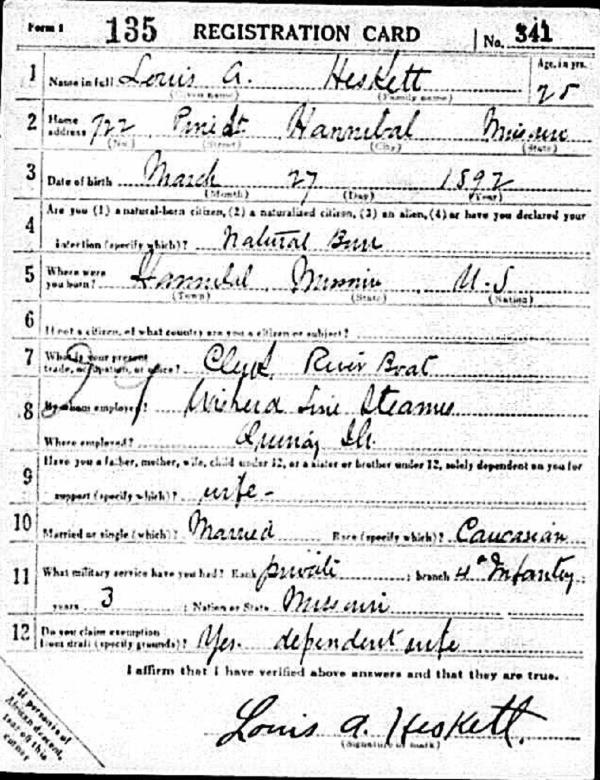 Form 1 135 REGISTRATION CARD No. 341
1 Name in full Louis A. Heskett Age, in yrs. 25
(Given name) (Family name)
2 Home address 722 Pine St Hannibal Missouri
(No.) (Street) (City) (State)
3 Date of birth March 27 1892
(Month) (Day) (Year)
4 Are you (1) a natural-born citizen, (2) a naturalized citizen, (3) an alien, (4) or have you declared your
intention (specify which)? Natural Born
5 Where were you born? Hannibal, Missouri U-S
(Town) (State) (Nation)
6 If not a citizen, of what country are you a citizen or subject?
7 What is your present trade, occupation, or office? Clerk River Boat
8 By whom employed? Line Steamer
Where employed? Quincy Ill.
9 Have you a father, mother, wife, child under 12, or a sister or brother under 12, solely dependent on you for
support (specify which)? wife -
10 Married or single (which)? Married Race (specify which)? Caucasian
11 What military service have you had? Rank private ; branch 4th Infantry ;
years 3 ; Nation or State Missouri
12 Do you claim exemption from draft (specify grounds)? Yes. dependent wife
I affirm that I have verified above answers and that they are true.
Louis A. Heskett.
(Signature or mark)
If person is of
African descent,
tear off this
corner